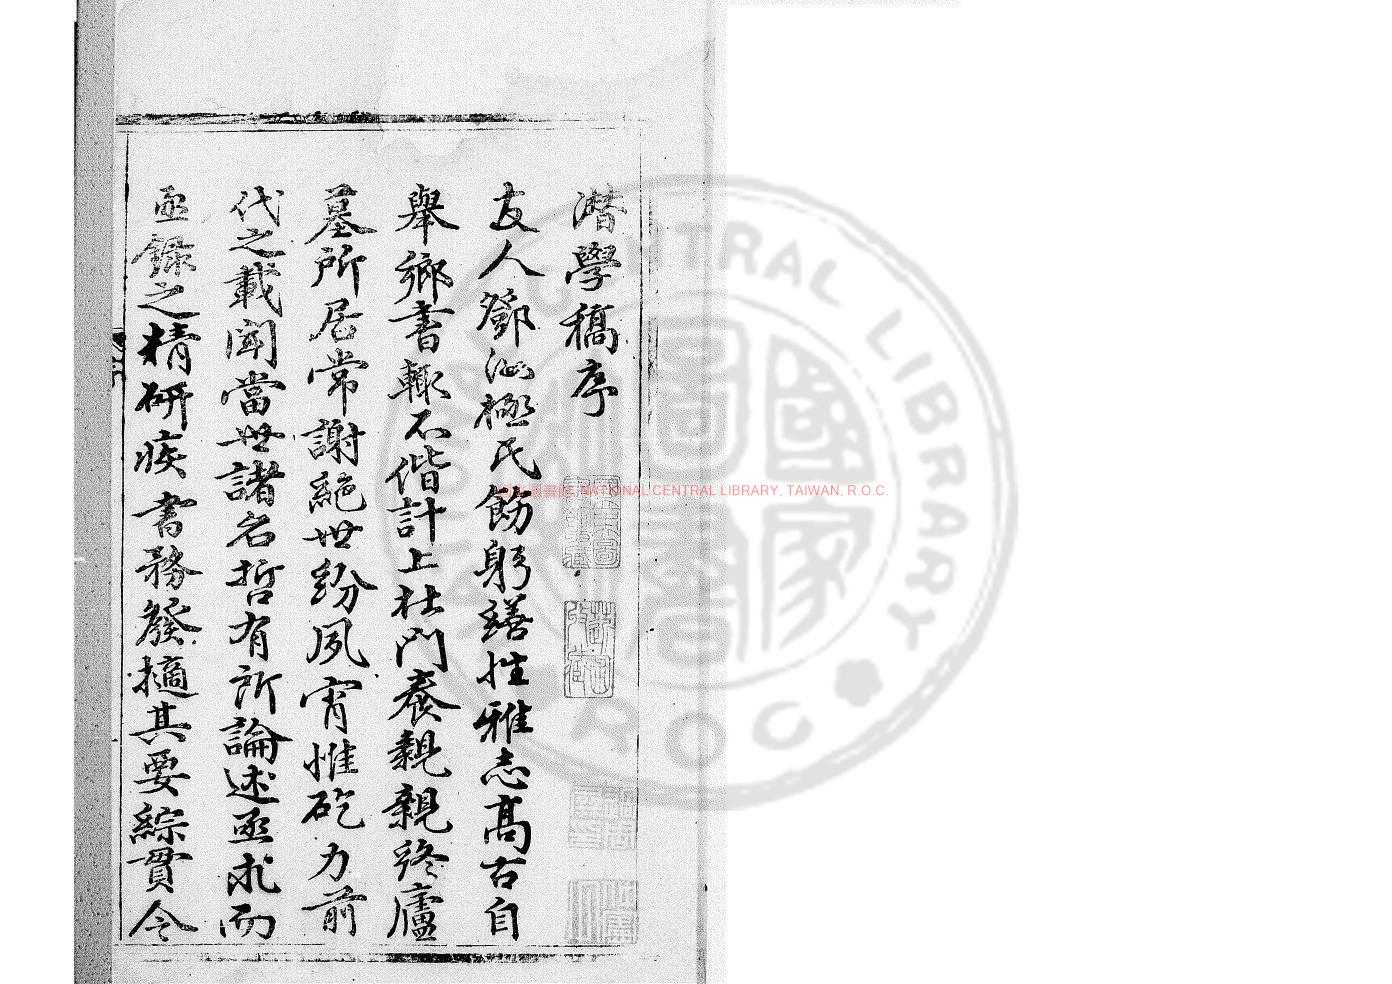 潛學稿序
友人鄧汝極氏飭躬繕性雅志高古自
舉鄉書輒不偕計上杜門養親親終廬
墓所居常謝絕世紛夙宵惟矻力前
代之載聞當世諸名哲有所論述亟求而
亟錄之精研疾書務發擿其要綜貫今
國家圖書館 NATIONAL CENTRAL LIBRARY, TAIWAN, R.O.C.
NATIONAL CENTRAL LIBRARY
R O C
國家圖書